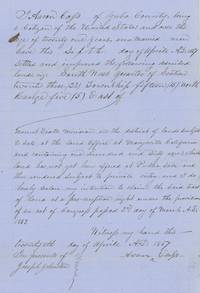 I, Aaron Cass of Yuba County, being
a Citizen of the United States and over the
age of twenty one years, an unmarried man
have this day of April A.D. 1857
settled and improved the following described
lands viz South West quarter of Section
twenty three (23) Township fifteen (15) north
Range five (5) East of
Mount Diablo Meridian in the district of lands subject
to sale at the land office at Marysville California
and containing one hundred and sixty acres which
land has not yet been offered at
and thus rendered subject to private entry and I do
hereby declare my intention to claim the said tract
of land as a pre-emption right under the provisions
of an act of Congress passed 3d day of March A.D.
1853
Witness my hand this
twentyeth day of April A.D. 1857
In presence of Aaron Cass
Joseph Johnston